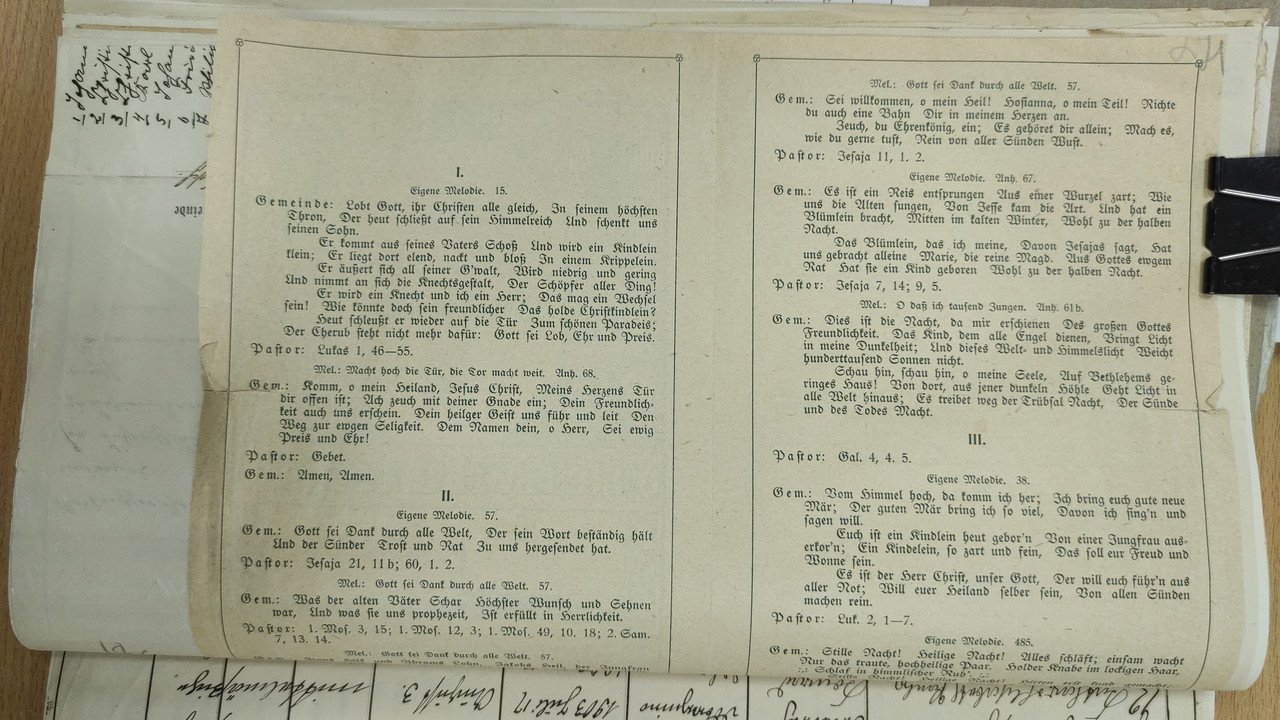 I.
Eigene Melodie. 15.
Gemeinde: Lobt Gott, ihr Christen alle gleich, In seinem höchsten
Thron, Der heut schließt auf sein Himmelreich Und schenkt uns
seinen Sohn.
Er kommt aus seines Vaters Schoß Und wird ein Kindlein
klein; Er liegt dort elend, nackt und bloß In einem Krippelein.
Er äußert sich all seiner G'walt, Wird niedrig und gering
Und nimmt an sich die Knechtsgestalt, Der Schöpfer aller Ding!
Er wird ein Knecht und ich ein Herr; Das mag ein Wechsel
sein! Wie könnte doch sein freundlicher Das holde Christkindlein?
Heut schleußt er wieder auf die Tür Zum schönen Paradeis;
Der Cherub steht nicht mehr dafür: Gott sei Lob, Ehr und Preis.
Pastor: Lukas 1, 46—55.
Mel.: Macht hoch die Tür, die Tor macht weit. Anh. 68.
Gem.: Komm, o mein Heiland, Jesus Christ, Meins Herzens Tür
dir offen ist; Ach zeuch mit deiner Gnade ein; Dein Freundlich-
keit auch uns erschein. Dein heilger Geist uns führ und leit Den
Weg zur ewgen Seligkeit. Dem Namen dein, o Herr, Sei ewig
Preis und Ehr!
Pastor: Gebet.
Gem.: Amen, Amen.
II.
Eigene Melodie. 57.
Gem.: Gott sei Dank durch alle Welt, Der sein Wort beständig hält
Und der Sünder Trost und Rat Zu uns hergesendet hat.
Pastor: Jesaja 21, 11b; 60, 1. 2.
Mel.: Gott sei Dank durch alle Welt. 57.
Gem.: Was der alten Väter Schar Höchster Wunsch und Sehnen
war, Und was sie uns prophezeit, Ist erfüllt in Herrlichkeit.
Pastor: 1. Mos. 3, 15; 1. Mos. 12, 3; 1. Mos. 49, 10. 18; 2. Sam.
7, 13. 14.
Mel.: Gott sei Dank durch alle Welt. 57.
Gem.: Zions Hilf und Abrams Lohn, Jakobs Heil, der Jungfrau
Mel.: Gott sei Dank durch alle Welt. 57.
Gem.: Sei willkommen, o mein Heil! Hosianna, o mein Teil! Richte
du auch eine Bahn Dir in meinem Herzen an.
Zeuch, du Ehrenkönig, ein; Es gehöret dir allein; Mach es,
wie du gerne tust, Rein von aller Sünden Wust.
Pastor: Jesaja 11, 1. 2.
Eigene Melodie. Anh. 67.
Gem.: Es ist ein Reis entsprungen Aus einer Wurzel zart; Wie
uns die Alten sungen, Von Jesse kam die Art. Und hat ein
Blümlein bracht, Mitten im kalten Winter, Wohl zu der halben
Nacht.
Das Blümlein, das ich meine, Davon Jesajas sagt, Hat
uns gebracht alleine Marie, die reine Magd. Aus Gottes ewgem
Rat Hat sie ein Kind geboren Wohl zu der halben Nacht.
Pastor: Jesaja 7, 14; 9, 5.
Mel.: O daß ich tausend Zungen. Anh. 61b.
Gem.: Dies ist die Nacht, da mir erschienen Des großen Gottes
Freundlichkeit. Das Kind, dem alle Engel dienen, Bringt Licht
in meine Dunkelheit; Und dieses Welt- und Himmelslicht Weicht
hunderttausend Sonnen nicht.
Schau hin, schau hin, o meine Seele, Auf Bethlehems ge-
ringes Haus! Von dort, aus jener dunkeln Höhle Geht Licht in
alle Welt hinaus; Es treibet weg der Trübsal Nacht, Der Sünde
und des Todes Macht.
III.
Pastor: Gal. 4, 4. 5.
Eigene Melodie. 38.
Gem.: Vom Himmel hoch, da komm ich her; Ich bring euch gute neue
Mär; Der guten Mär bring ich so viel, Davon ich sing'n und
sagen will.
Euch ist ein Kindlein heut gebor'n Von einer Jungfrau aus-
erkor'n; Ein Kindelein, so zart und fein, Das soll eur Freud und
Wonne sein.
Es ist der Herr Christ, unser Gott, Der will euch führ'n aus
aller Not; Will euer Heiland selber sein, Von allen Sünden
machen rein.
Pastor: Luk. 2, 1—7.
Eigene Melodie. 485.
Gem.: Stille Nacht! Heilige Nacht! Alles schläft; einsam wacht
Nur das traute, hochheilige Paar. Holder Knabe im lockigen Haar,
:,: Schlaf in himmlischer Ruh. :,:
Stille Nacht! Heilige Nacht! Hirten erst kund gemacht;